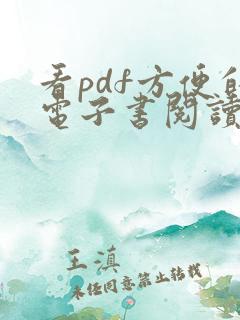 看pdf方便的
電子書閱讀
王滇
未經同意禁止轉載